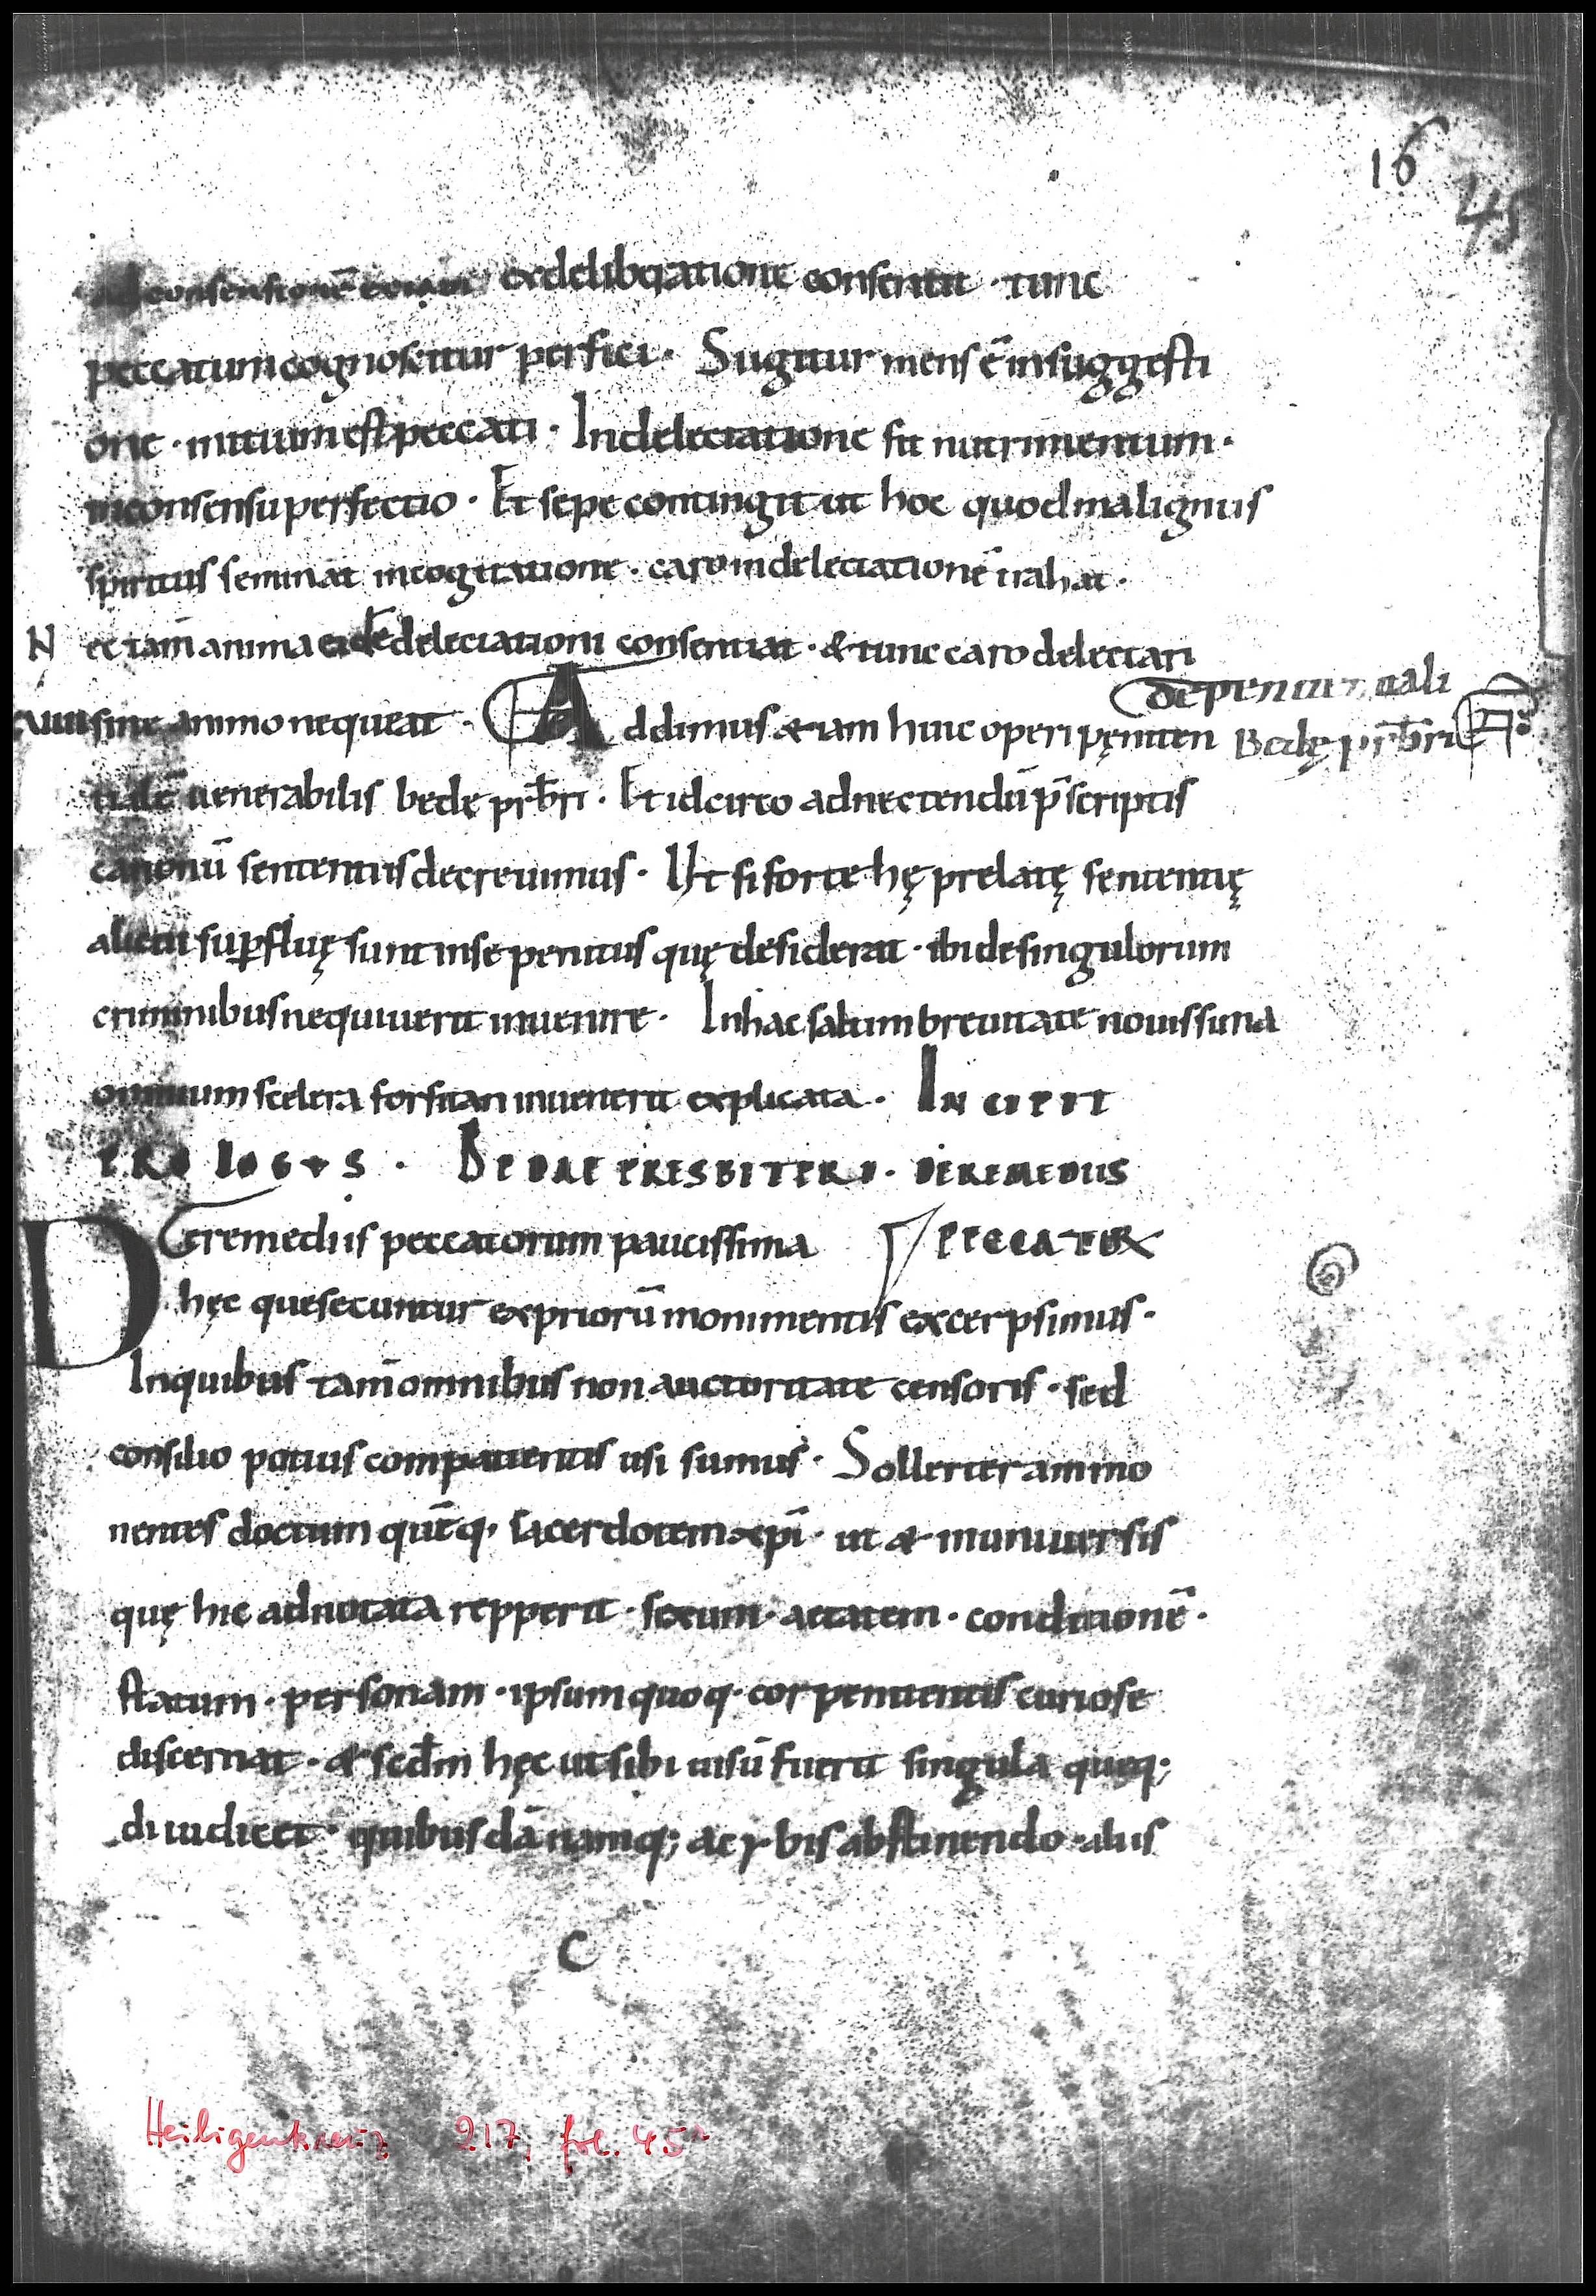 16
45
ad consensionē etiam ex deliberatione consentit · tunc
peccatum cognoscitur perfici · Sugitur mens ē in suggesti
one · initium est peccati · In delectatione fit nutrimentum ·
in consensu perfectio · Et sepe contingit ut hoc quod malignus
spiritus seminat in cogitatione · caro in delectationē trahat ·
Nec tam̄ anima eidē delectationi consentiat · & tunc caro delectari
cum sine animo nequeat · Addimus & iam huic operi pęniten
de penitentiali
Bedę prb̄ri
tialē venerabilis bede prb̄ri · Et idcirco adnectendū p̄scriptis
canonū sententiis decrevimus · Ut si forte hę prelatę sententię
alicui suꝑfluę sunt in se penitus quę desiderat · ibi de singulorum
criminibus nequiverit invenire · In hac saltim brevitate novissima
omnium scelera forsitan invenerit explicata · INCIPIT
PROLOGUS · BEDAE PRESBITERI · DE REMEDIIS
PECCATOR
De remediis peccatorum paucissima
hęc que secuntur ex priorū monimentis excerpsimus ·
In quibus tam̄ omnibus non auctoritate censoris · sed
consilio potius compatientis usi sumus · Sollerter ammo
nentes doctum quēq· sacerdotem xp̄i · ut & in universis
quę hic adnotata reppererit · sexum · aetatem · conditionē ·
statum · personam · ipsum quoq· cor penitentis curiose
discernat · & scd̄m hęc ut sibi visū fuerit singula queq;
diiudicet · quibusdā namq; acerbis abstinendo · aliis
C
Heiligenkreuz 217, fol. 45r